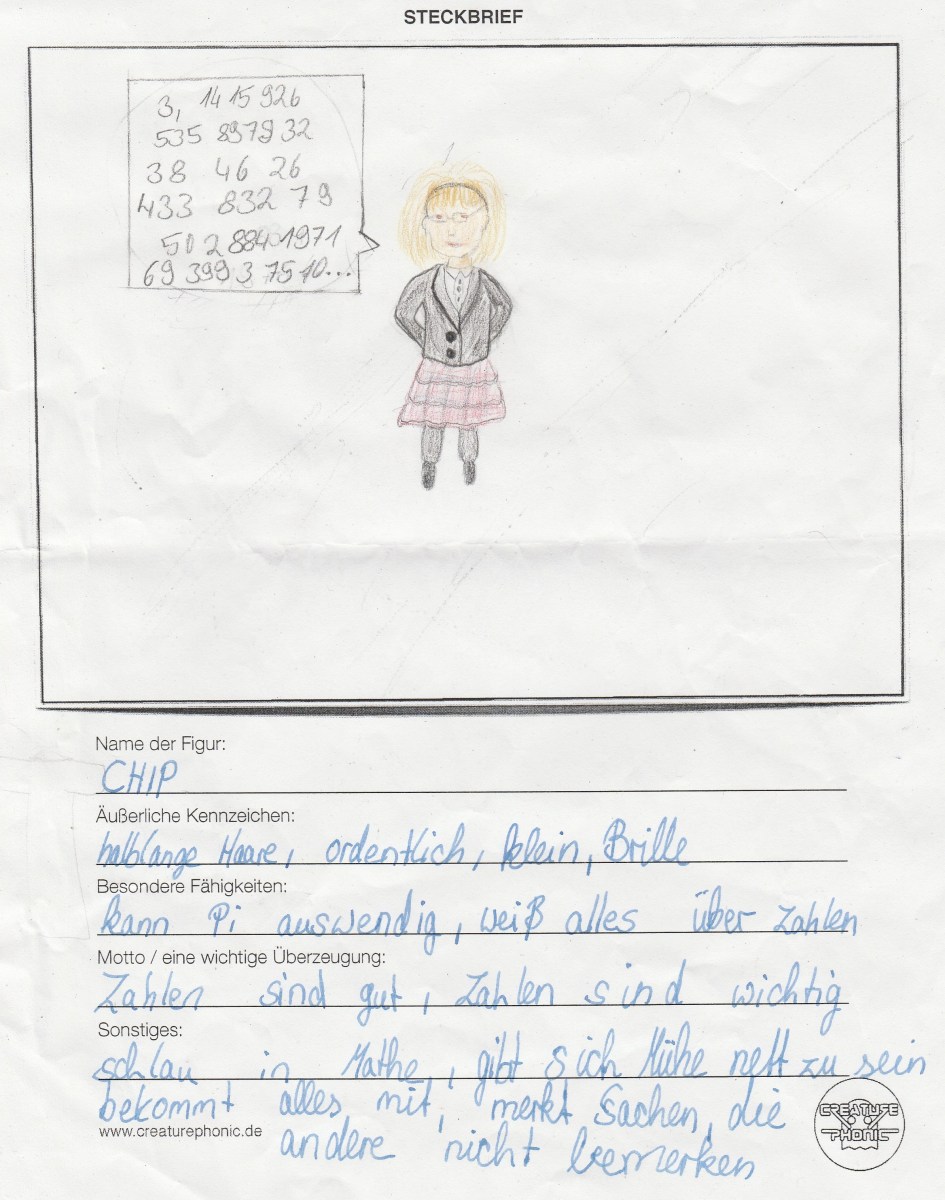 STECKBRIEF
3, 1415 926
535 8979 32
38 46 26
433 832 79
50 2 8840 1971
69 399 3 75 10...
Name der Figur:
CHIP
Äußerliche Kennzeichen:
halblange Haare, ordentlich, klein, Brille
Besondere Fähigkeiten:
kann Pi auswendig, weiß alles über Zahlen
Motto / eine wichtige Überzeugung:
Zahlen sind gut, Zahlen sind wichtig
Sonstiges:
schlau in Mathe, gibt sich Mühe nett zu sein
bekommt alles mit, merkt Sachen, die
andere nicht bemerken
www.creaturephonic.de
CREATURE
PHONIC